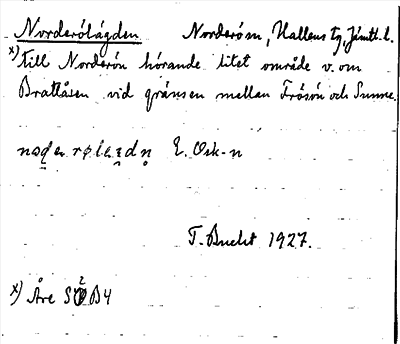 Norderölägden Norderöm, Hallens tg, Jämtl. l.
x) till Norderön hörande litet område v. om
Brattåsen vid gränsen mellan Frösön och Sunne.
E. Osk-n
T. Bucht 1927.
x) Åre S2B4